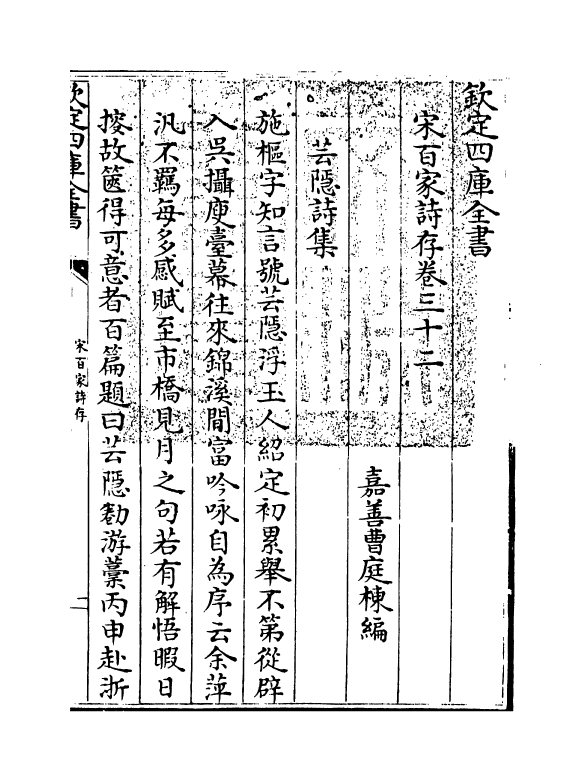 欽定四庫全書
宋百家詩存卷三十二
嘉善曹庭棟編
芸隱詩集
施樞字知言號芸隱浮玉人紹定初累舉不第從辟
入吳攝庾臺幕往來錦溪間富吟咏自為序云余萍
汎不羈每多感賦至市橋見月之句若有解悟暇日
按故篋得可意者百篇題曰芸隱勌游藁丙申赴浙
欽定四庫全書
宋百家詩存